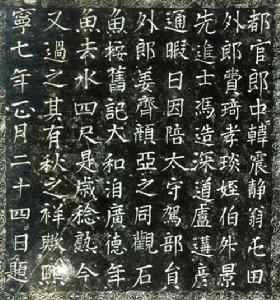 都官郎中韓震静翁屯田
外郎費琦孝琰姪伯升景
先進士馮造深道盧遘彦
通暇日因陪太守駕部員
外郎姜齊顏亞之同觀石
魚按舊記大和洎廣德年
魚去水四尺是歲稔熟今
又過之其有秋之祥歟熙
寧七年正月二十四日題